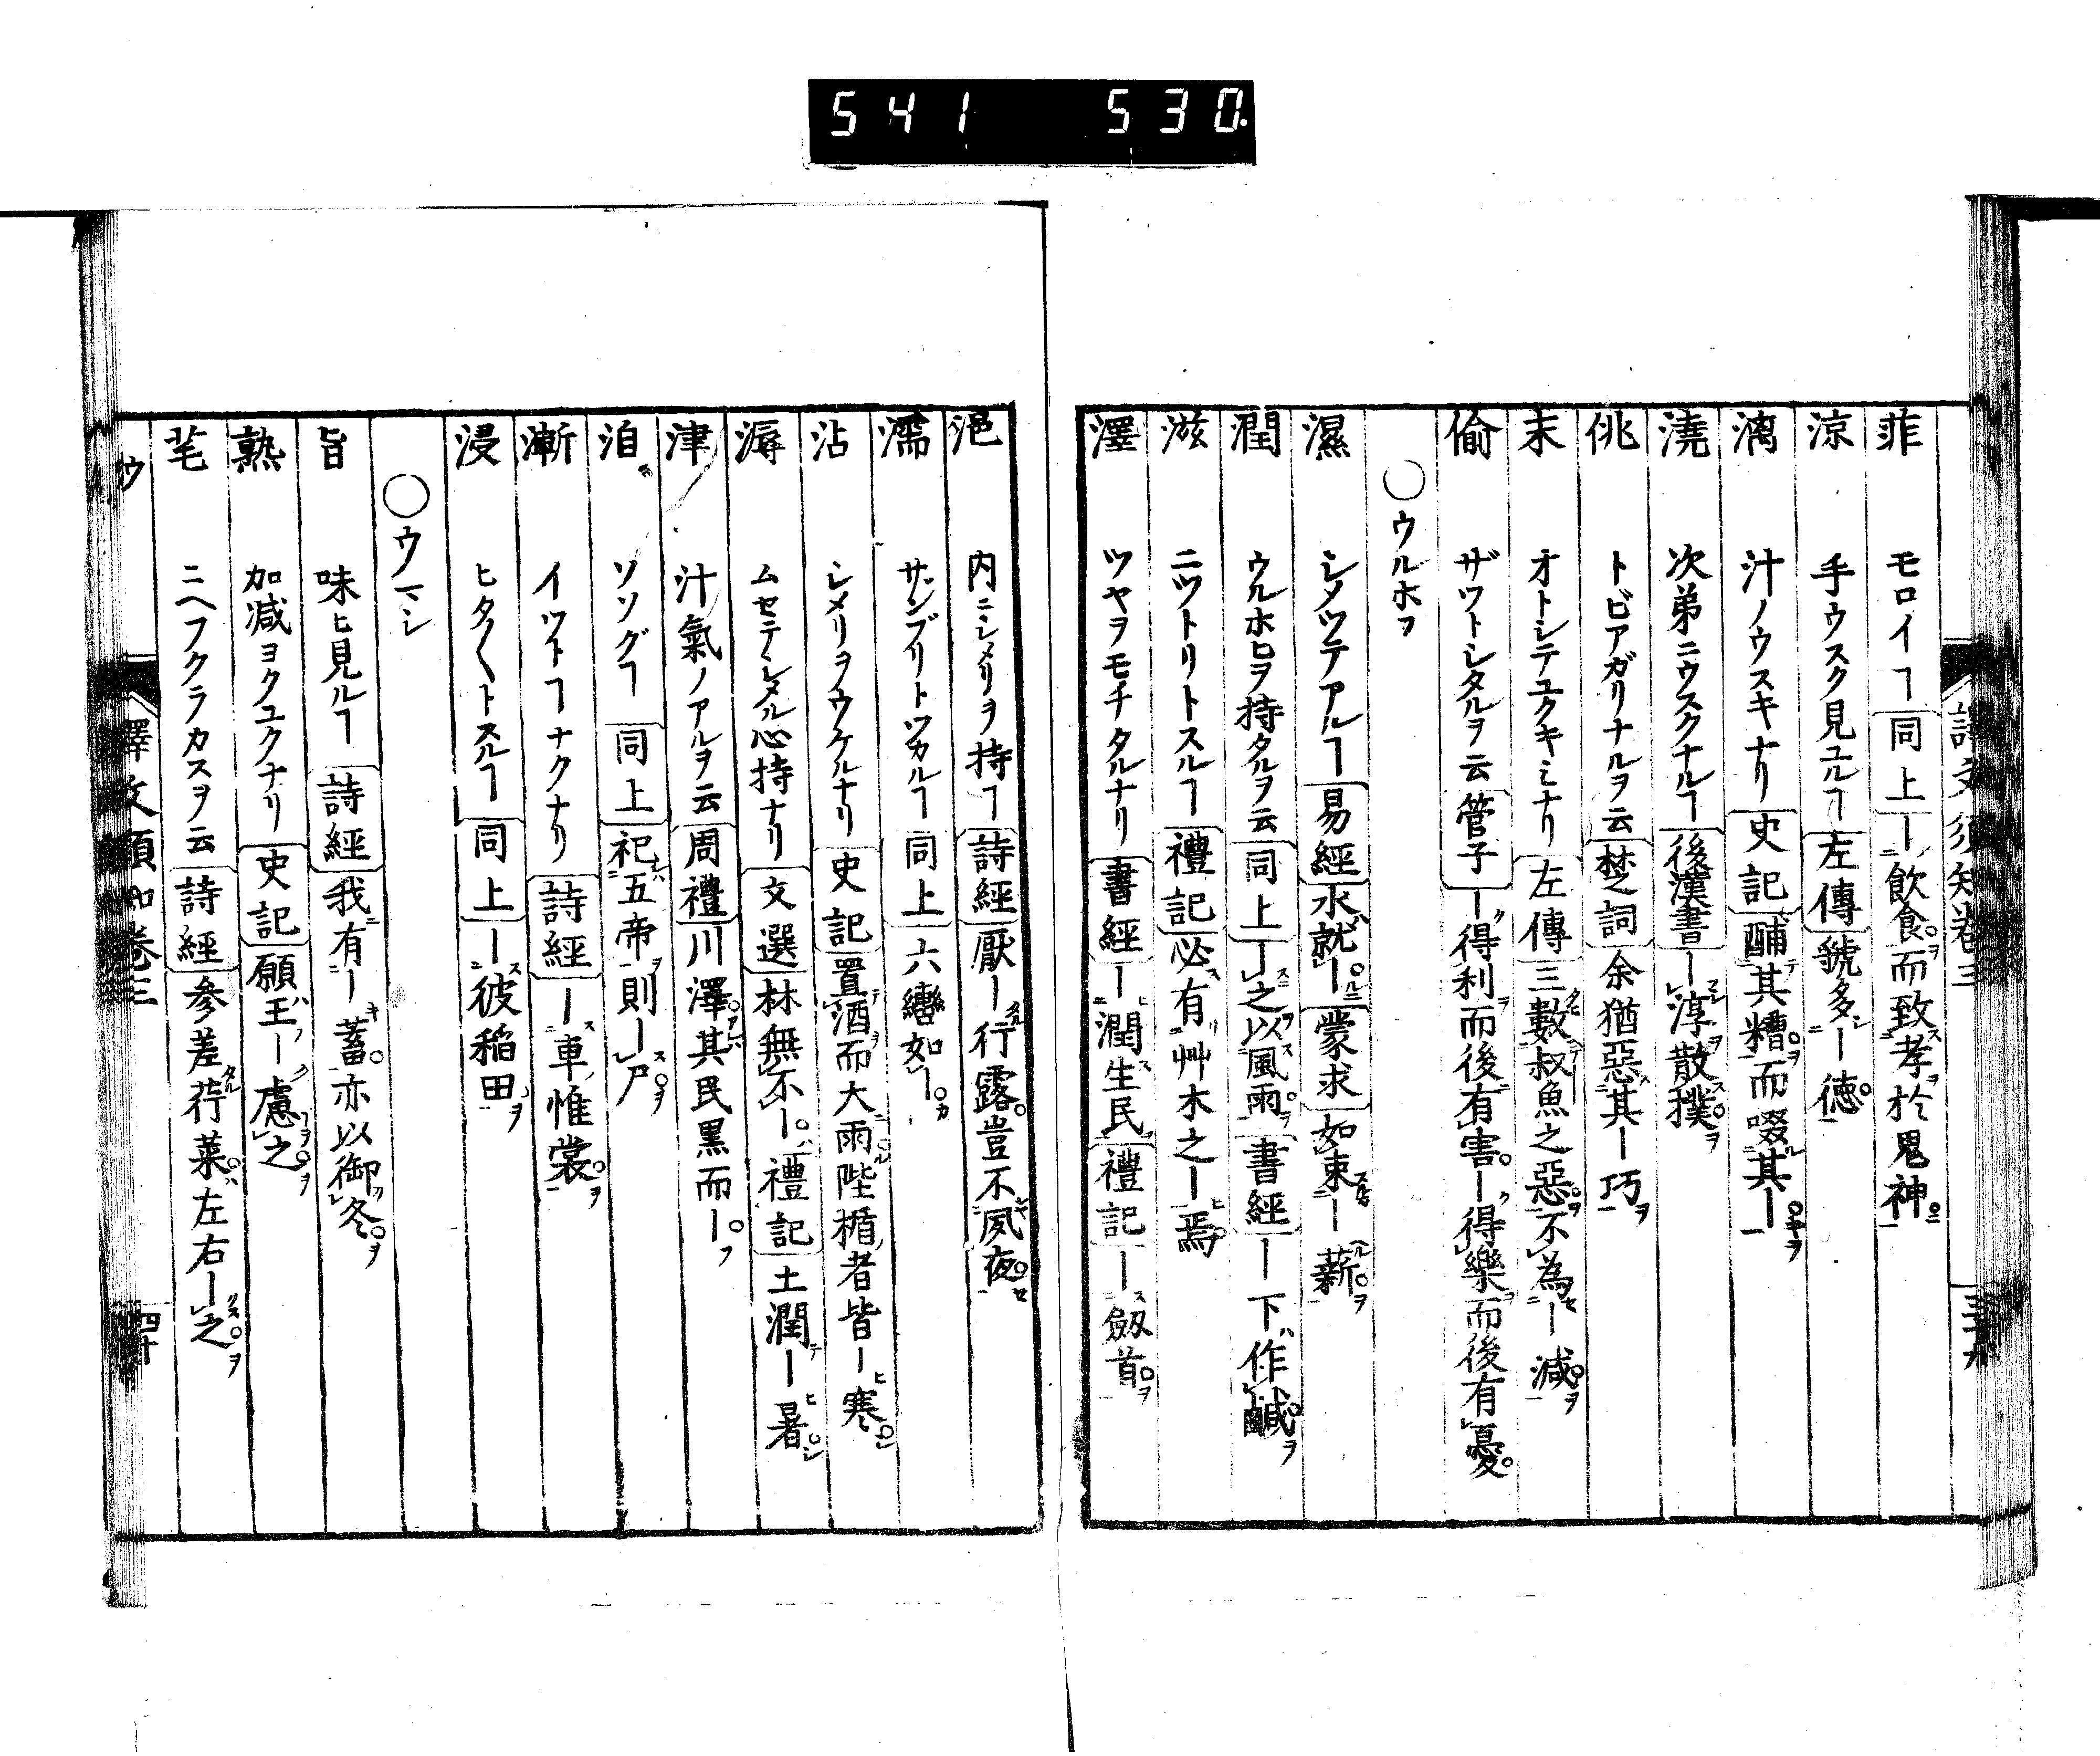 541 530
譯文須知卷三
菲 モロイヿ 同上 ー飲食而致孝於鬼神
涼 手ウスク見ユルヿ 左傳 虢多ー德
漓 汁ノウスキナリ 史記 餔其糟而啜其ー
澆 次第ニウスクナルヿ 後漢書 ー淳散撲
佻 トビアガリナルヲ云 楚詞 余猶惡其ー巧
末 オトシテユクキミナリ 左傳 三數叔魚之惡不為ー減
偷 ザツトシタルヲ云 管子 ー得利而後有害ー得樂而後有憂
〇ウルホフ
濕 シメツテアルヿ 易經 水就ー 蒙求 如束ー薪
潤 ウルホヒヲ持タルヲ云 同上 ー之以風雨 書經 ー下作鹹
滋 ニツトリトスルヿ 禮記 必有艸木之ー焉
澤 ツヤヲモチタルナリ 書經 ー潤生民 禮記 ー劔首
浥 内ニシメリヲ持ヿ 詩經 厭ー行露豈不夙夜
濡 サンブリトツカルヿ 同上 六轡如ー
沾 シメリヲウケルナリ 史記 置酒而大雨陛楯者皆ー寒
溽 ムセテシメル心持ナリ 文選 林無不ー 禮記 土潤ー暑
津 汁氣ノアルヲ云 周禮 川澤其民黒而ー
洎 ソソグヿ 同上 祀五帝則ー尸
漸 イツトヿナクナリ 詩經 ー車惟裳
浸 ヒタ〱トスルヿ 同上 ー彼稲田
〇ウマシ
旨 味ヒ見ルヿ 詩經 我有ー蓄亦以御冬
熟 加减ヨクユクナリ 史記 願王ー慮之
芼 ニヘフクラカスヲ云 詩經 參差荇菜左右ー之
ウ 譯文須知卷三 四十